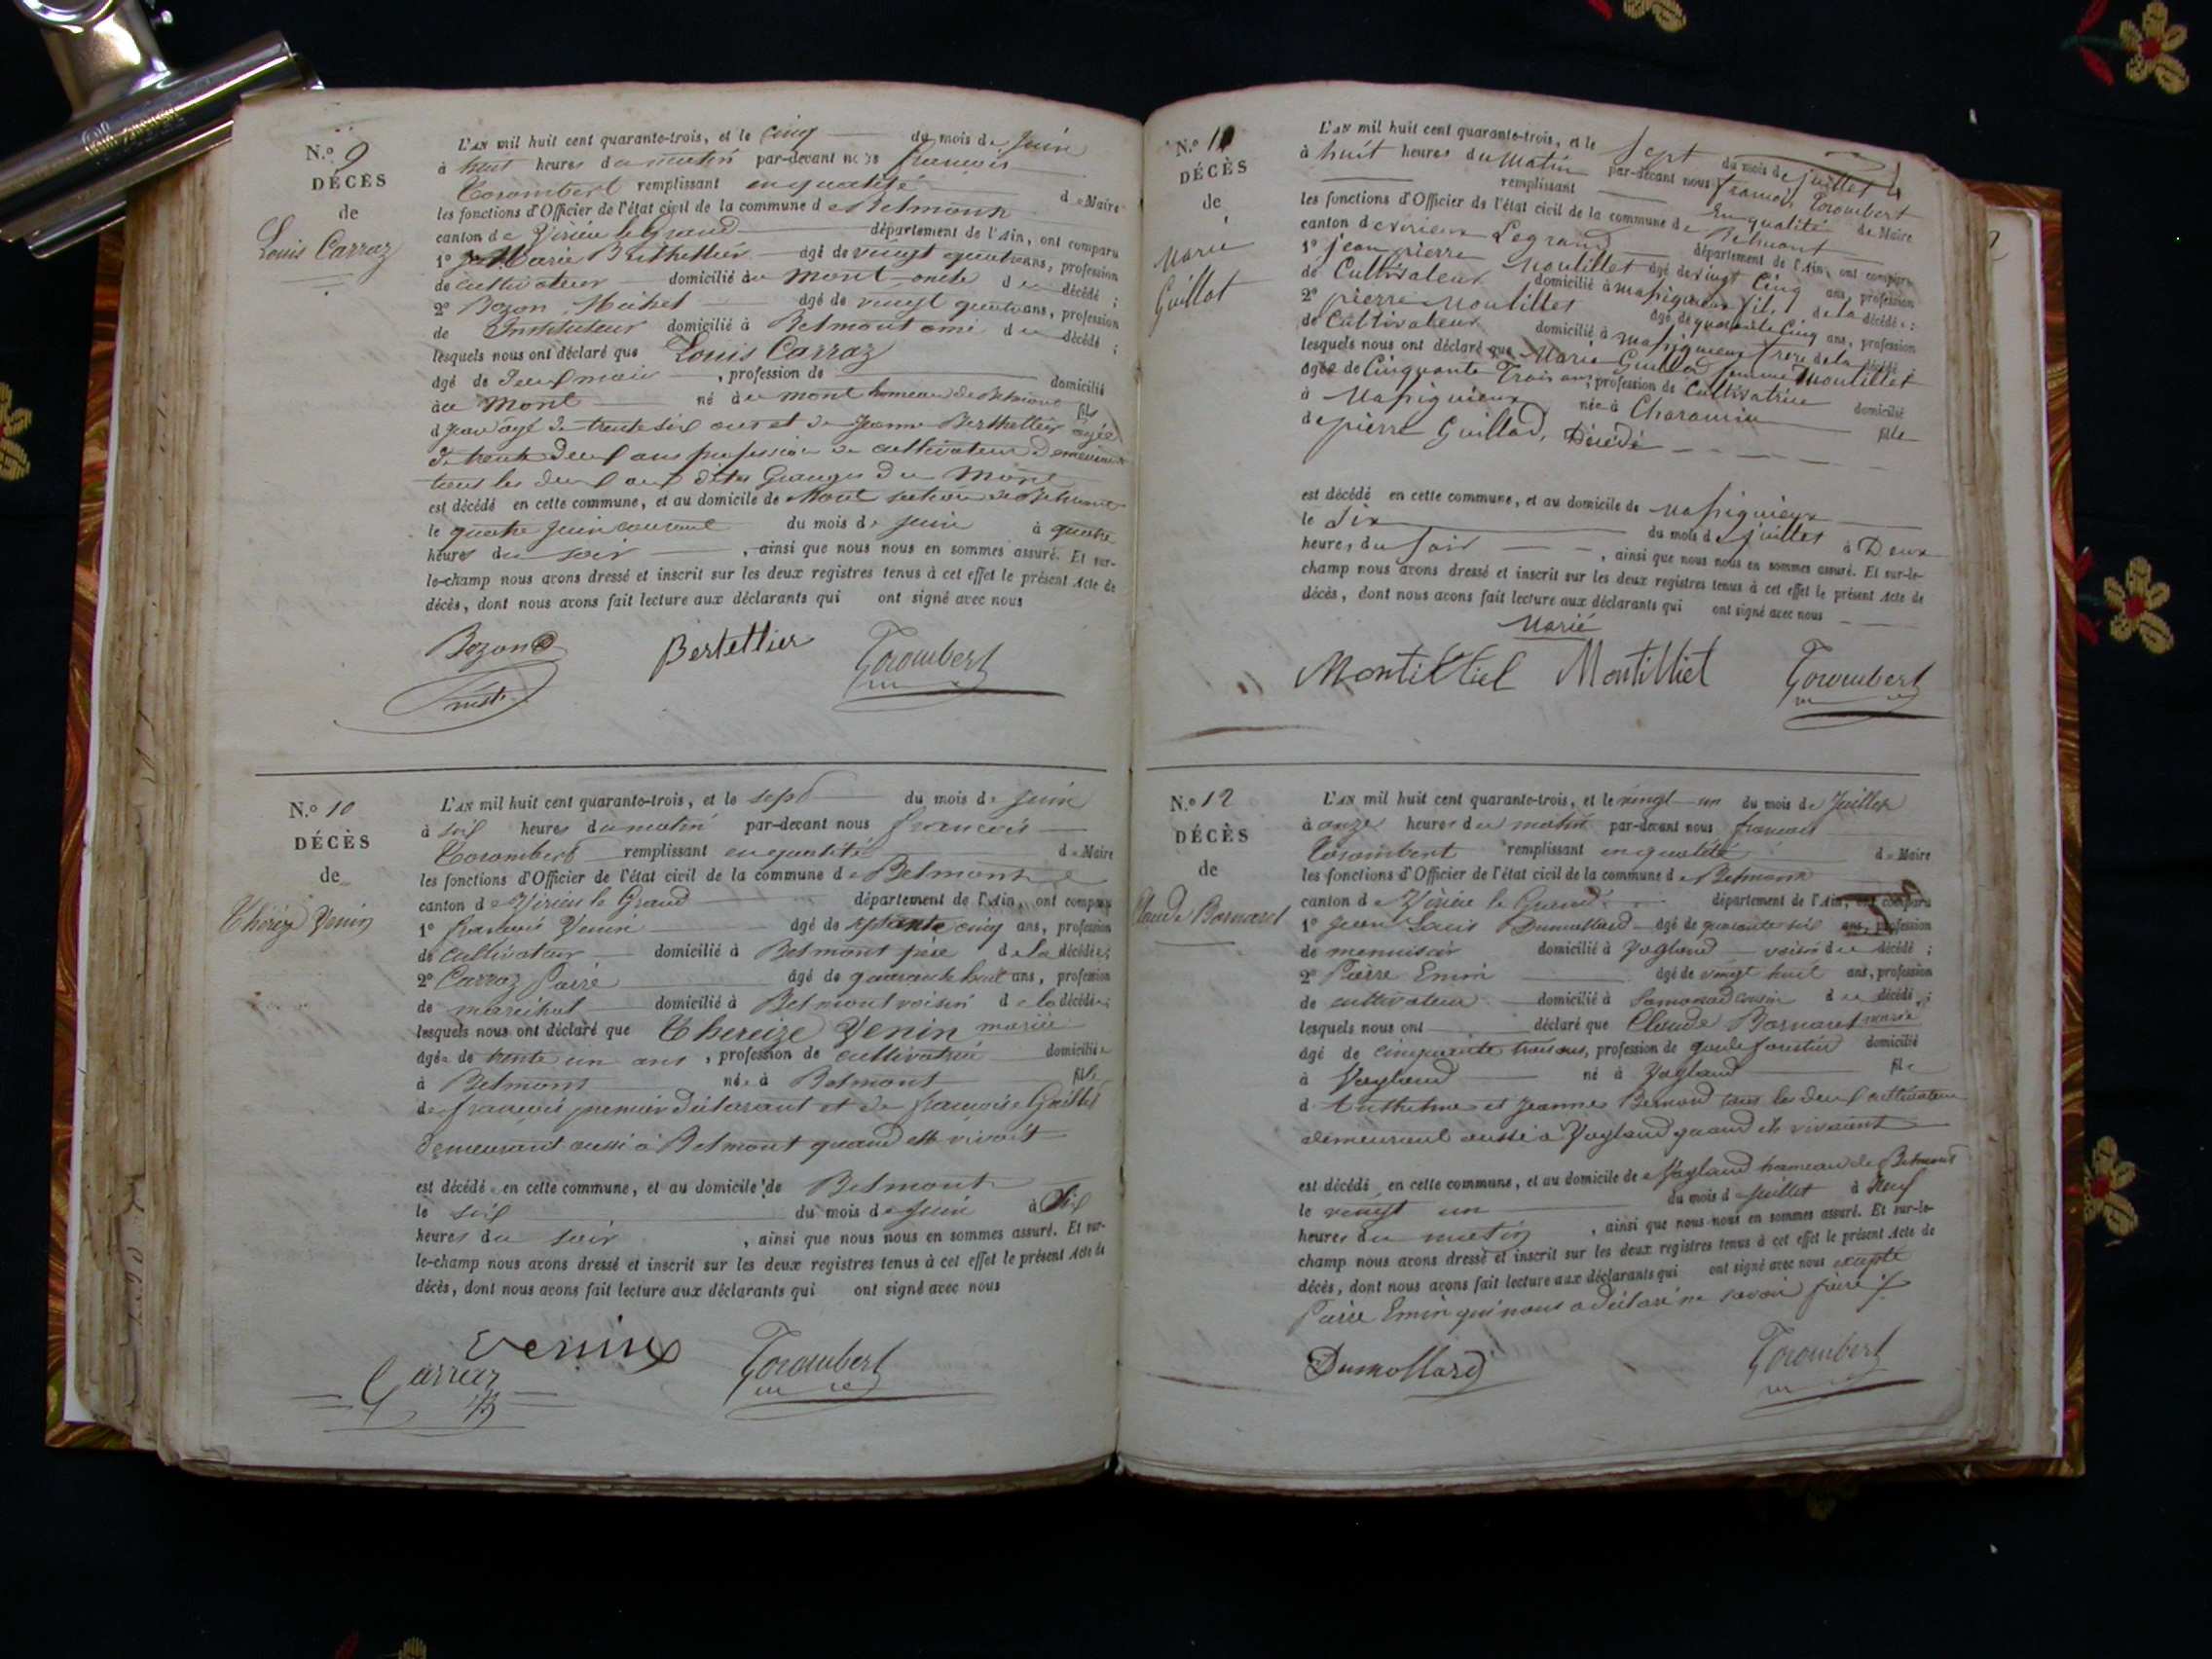 N.º 9
DÉCÈS
de
Louis Carraz
L'AN mil huit cent quarante-trois, et le cinq du mois de Juin
à huit heures du matin par-devant nous françois
Corombert remplissant en qualité de Maire
les fonctions d'Officier de l'état civil de la commune de Belmont
canton de Virieu le Grand département de l'Ain, ont comparu
1º Marie Berthellier âgé de vingt quatre ans, profession
de cultivateur domicilié au mont oncle du décédé ;
2º Bozon Michel âgé de vingt quatre ans, profession
de Instituteur domicilié à Belmont ami du décédé ;
lesquels nous ont déclaré que Louis Carraz
âgé de deux mois , profession de domicilié
au Mont né au mont hameau de Belmont fils
d Jean âgé de trente six ans et de Jeanne Berthellier âgée
de trente deux ans profession de cultivateurs demeurant
tous les deux aux dites Granges du Mont
est décédé en cette commune, et au domicile de Mont section de Belmont
le quatre juin courant du mois de juin à quatre
heures du soir , ainsi que nous nous en sommes assuré. Et sur-
le-champ nous avons dressé et inscrit sur les deux registres tenus à cet effet le présent Acte de
décès, dont nous avons fait lecture aux déclarants qui ont signé avec nous
Bozon Bertellier Corombert
Instr
N.º 10
DÉCÈS
de
Thérèze Venin
L'AN mil huit cent quarante-trois, et le sept du mois de juin
à six heures du matin par-devant nous françois
Corombert remplissant en qualité de Maire
les fonctions d'Officier de l'état civil de la commune de Belmont
canton de Virieu le Grand département de l'Ain, ont comparu
1º françois Venin âgé de septante cinq ans, profession
de cultivateur domicilié à Belmont père de la décédée;
2º Carraz Pierre âgé de quarante huit ans, profession
de maréchal domicilié à Belmont voisin de la décédée;
lesquels nous ont déclaré que Thereize Venin mariée
âgée de trente un ans , profession de cultivatrice domiciliée
à Belmont née à Belmont fille
de françois premier déclarant et de françoise Gaillet
demeurant aussi à Belmont quand elle vivait
est décédée en cette commune, et au domicile de Belmont
le six du mois de Juin à six
heures du soir , ainsi que nous nous en sommes assuré. Et sur-
le-champ nous avons dressé et inscrit sur les deux registres tenus à cet effet le présent Acte de
décès, dont nous avons fait lecture aux déclarants qui ont signé avec nous
Venin Corombert
Carraz
N.º 11
DÉCÈS
de
Marie
Guillot
L'AN mil huit cent quarante-trois, et le Sept du mois de juillet
à huit heures du Matin par-devant nous françois Corombert
remplissant En qualité de Maire
les fonctions d'Officier de l'état civil de la commune de Belmont
canton de virieux Le grand département de l'Ain, ont comparu
1º jean pierre Montillet âgé de vingt Cinq ans, profession
de Cultivateur domicilié à Massignieux fils de la décédée ;
2º pierre Montillet âgé de quarante Cinq ans, profession
de Cultivateur domicilié à Massignieux frere de la décédé
lesquels nous ont déclaré que Marie Guillod femme Montillet
âgée de Cinquante Trois ans, profession de Cultivatrice domicilié
à Massignieux née à Charancin fille
de pierre Guillod, Décédé
est décédé en cette commune, et au domicile de Massignieux
le Six du mois de juillet à Deux
heures du Soir , ainsi que nous nous en sommes assuré. Et sur-le-
champ nous avons dressé et inscrit sur les deux registres tenus à cet effet le présent Acte de
décès, dont nous avons fait lecture aux déclarants qui ont signé avec nous
Marié
Montilliel Montilliet Corombert
N.º 12
DÉCÈS
de
Claude Bornaret
L'AN mil huit cent quarante-trois, et le vingt un du mois de Juillet
à onze heures du matin par-devant nous françois
Corombert remplissant en qualité de Maire
les fonctions d'Officier de l'état civil de la commune de Belmont
canton de Virieu le Grand département de l'Ain, ont comparu
1º Jean Louis Dumollard âgé de quarante six ans, profession
de menuisier domicilié à Vogland voisin du décédé ;
2º Pierre Emin âgé de vingt huit ans, profession
de cultivateur domicilié à Samonod cousin du décédé ;
lesquels nous ont déclaré que Claude Bornaret marié
âgé de cinquante trois ans, profession de garde forestier domicilié
à Vogland né à Vogland fils
d'Anthelme et Jeanne Bernard tous les deux cultivateurs
demeurant aussi à Vogland quand ils vivaient
est décédé en cette commune, et au domicile de Vogland hameau de Belmont
le vingt un du mois de juillet à Neuf
heures du matin , ainsi que nous nous en sommes assuré. Et sur-le-
champ nous avons dressé et inscrit sur les deux registres tenus à cet effet le présent Acte de
décès, dont nous avons fait lecture aux déclarants qui ont signé avec nous excepté
Pierre Emin qui nous a déclaré ne savoir faire
Dumollard Corombert